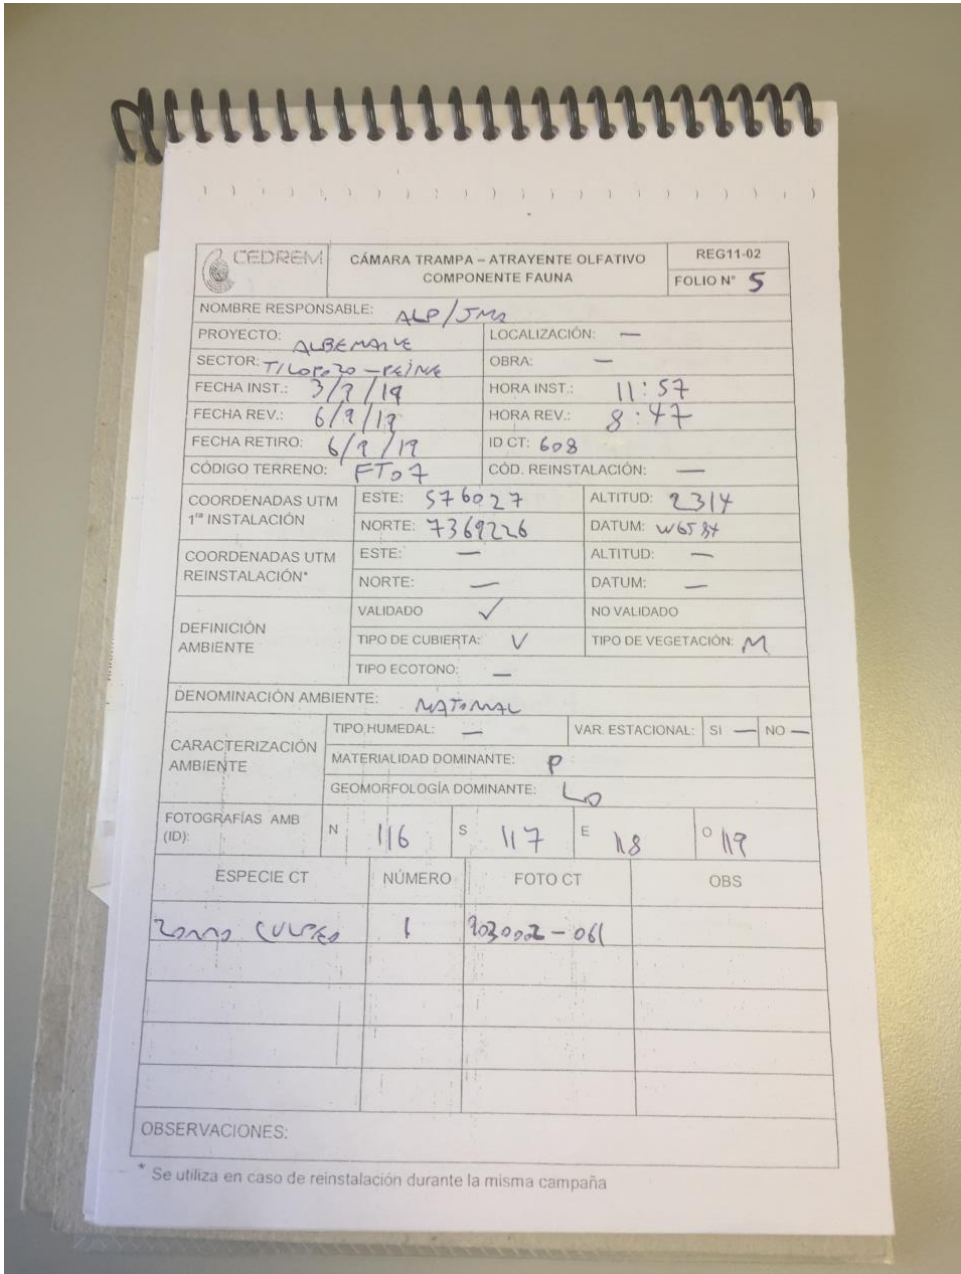 CEDREM
CÁMARA TRAMPA – ATRAYENTE OLFATIVO
COMPONENTE FAUNA
REG11-02
FOLIO N° 5
NOMBRE RESPONSABLE: ALP/JMR
PROYECTO: ALBEMARLE LOCALIZACIÓN: —
SECTOR: TILOPOZO – PEINE OBRA: —
FECHA INST.: HORA INST.: 11:57
FECHA REV.: HORA REV.: 8:47
FECHA RETIRO: ID CT: 608
CÓDIGO TERRENO: FT07 CÓD. REINSTALACIÓN: —
COORDENADAS UTM
1ra INSTALACIÓN
ESTE: 576027 ALTITUD: 2314
NORTE: 7369226 DATUM: WGS84
COORDENADAS UTM
REINSTALACIÓN*
ESTE: — ALTITUD: —
NORTE: — DATUM: —
DEFINICIÓN
AMBIENTE
VALIDADO ✓ NO VALIDADO
TIPO DE CUBIERTA: V TIPO DE VEGETACIÓN: M
TIPO ECOTONO: —
DENOMINACIÓN AMBIENTE: MATORRAL
CARACTERIZACIÓN
AMBIENTE
TIPO HUMEDAL: — VAR. ESTACIONAL: SI — NO —
MATERIALIDAD DOMINANTE: P
GEOMORFOLOGÍA DOMINANTE: LO
FOTOGRAFÍAS AMB
(ID):
N 116 S 117 E 118 O 119
ESPECIE CT NÚMERO FOTO CT OBS
ZORRO CULPEO 1
OBSERVACIONES:
* Se utiliza en caso de reinstalación durante la misma campaña